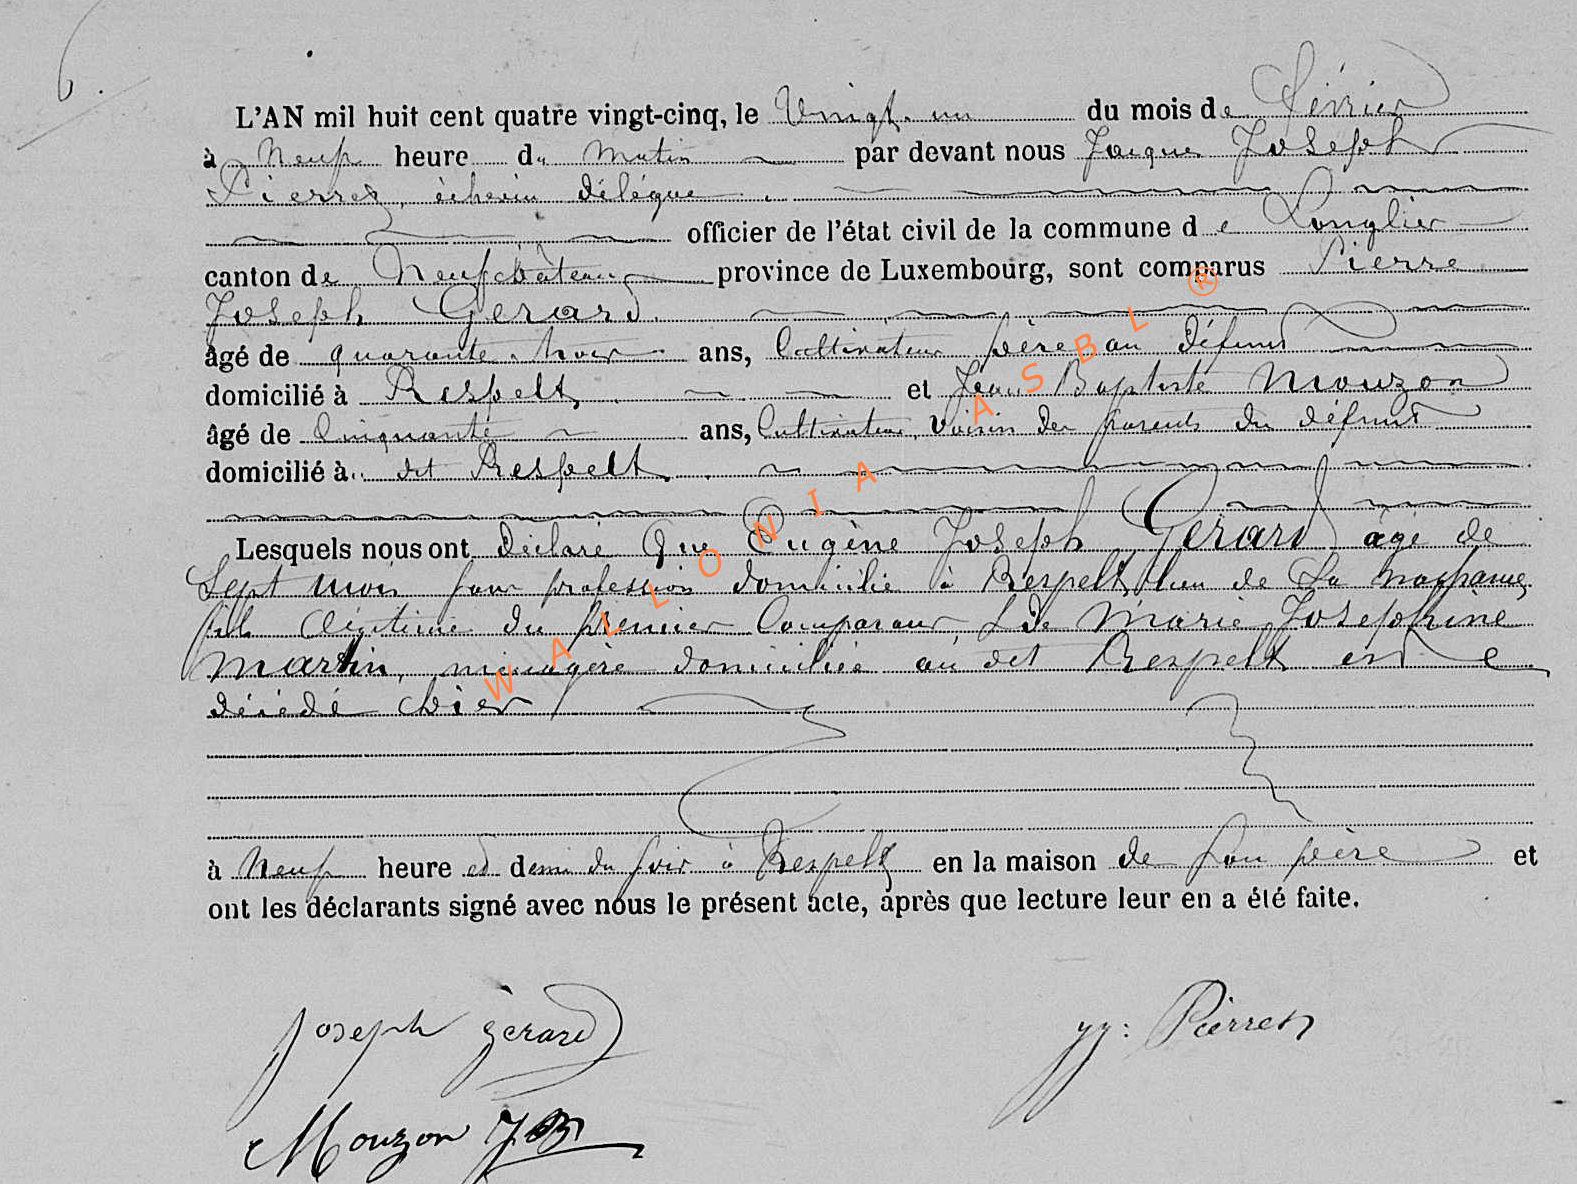 6.
L'AN mil huit cent quatre vingt-cinq, le Vingt-un du mois de Février
à Neuf heure du Matin par devant nous Jacques Joseph
Pierret, échevin délégué
officier de l'état civil de la commune de Longlier
canton de Neufchâteau province de Luxembourg, sont comparus Pierre
Joseph Gérard
âgé de quarante trois ans, Cultivateur père au défunt
domicilié à Respelt, et Jean Baptiste Mouzon
âgé de Cinquante ans, Cultivateur, Voisin des parents du défunt
domicilié à dit Respelt
Lesquels nous ont déclaré Que Eugène Joseph Gérard âgé de
Sept mois sans profession domicilié à Respelt, lieu de Sa naissance,
fils légitime du premier Comparant, & de Marie Josephine
Martin, ménagère domiciliée au dit Respelt est
décédé hier
à Neuf heure et demi du soir à Respelt en la maison de son père et
ont les déclarants signé avec nous le présent acte, après que lecture leur en a été faite.
Joseph gérard
JJ: Pierret
Mouzon JB
WALLONIA ASBL ®